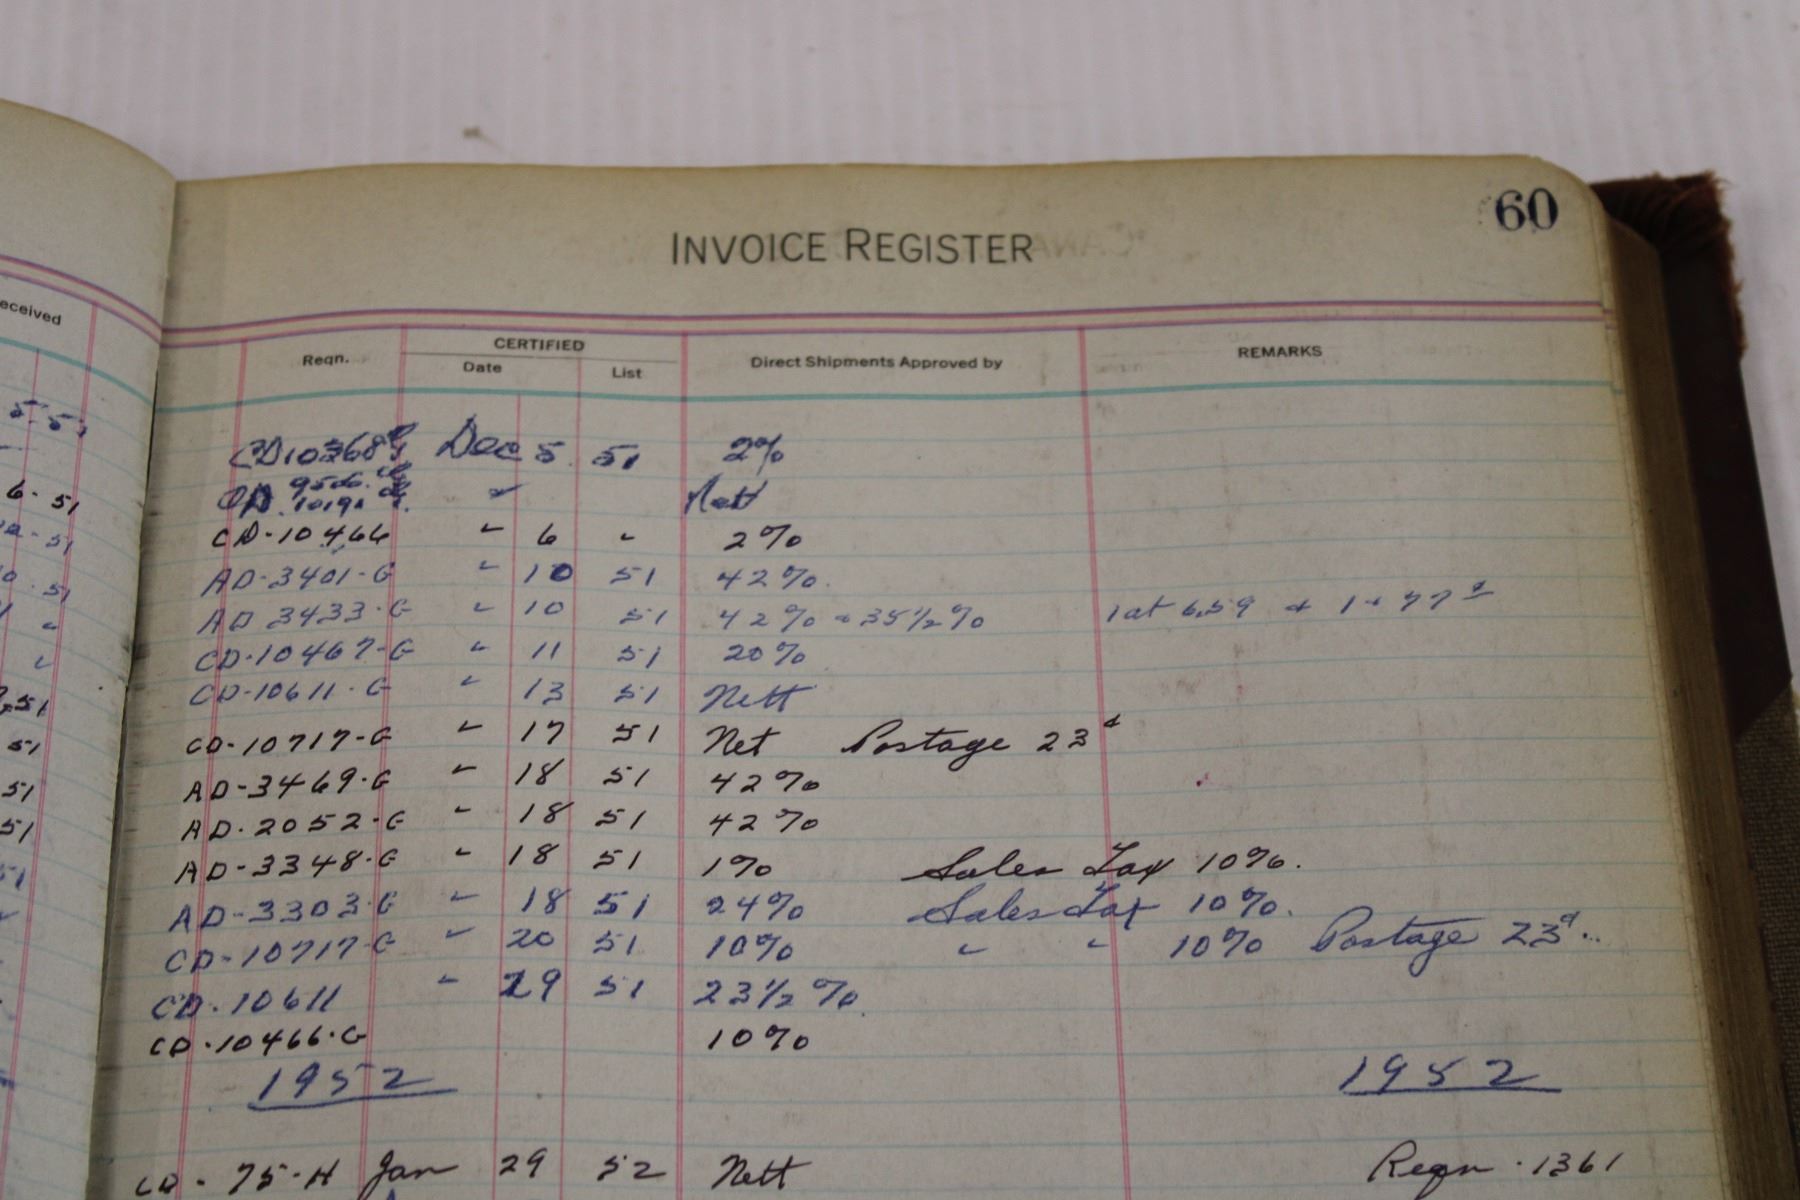 60
INVOICE REGISTER
eceived
Reqn.
CERTIFIED
Date
List
Direct Shipments Approved by
REMARKS
CD10368G Dec 5 51 2%
Nett
6-51
CD-10466 " 6 " 2%
AD-3401-G " 10 51 42%
AD 3433-G " 10 51 42% 35 1/2% 1 at 6.59 + 1
CD-10467-G " 11 51 20%
CD-10611-G " 13 51 Nett
CD-10717-G " 17 51 Net Postage 23¢
AD-3469-G " 18 51 42%
AD-2052-G " 18 51 42%
AD-3348-G " 18 51 1% Sales Tax 10%.
AD-3303-G " 18 51 24% Sales Tax 10%.
CD-10717-G " 20 51 10% " " 10% Postage 23¢.
CD-10611 " 29 51 23 1/2%
CD-10466-G 10%
1952 1952
CD-75-H Jan 29 52 Nett Reqn-1361